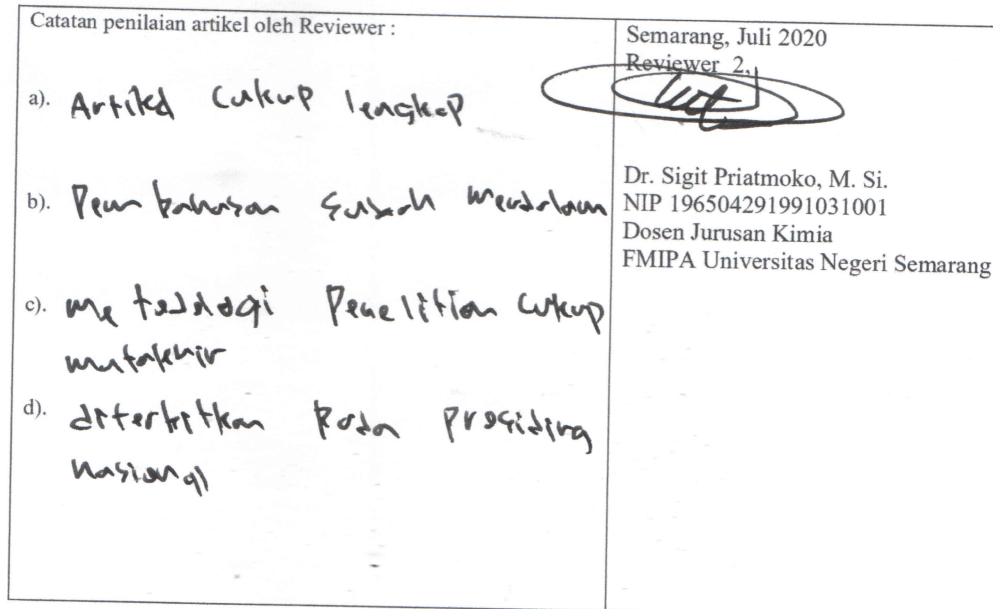 Catatan penilaian artikel oleh Reviewer :
a). Artikel cukup lengkap
b). Pembahasan sudah mendalam
c). metodologi Penelitian cukup
mutakhir
d). diterbitkan pada prosiding
nasional
Semarang, Juli 2020
Reviewer 2,
Dr. Sigit Priatmoko, M. Si.
NIP 196504291991031001
Dosen Jurusan Kimia
FMIPA Universitas Negeri Semarang